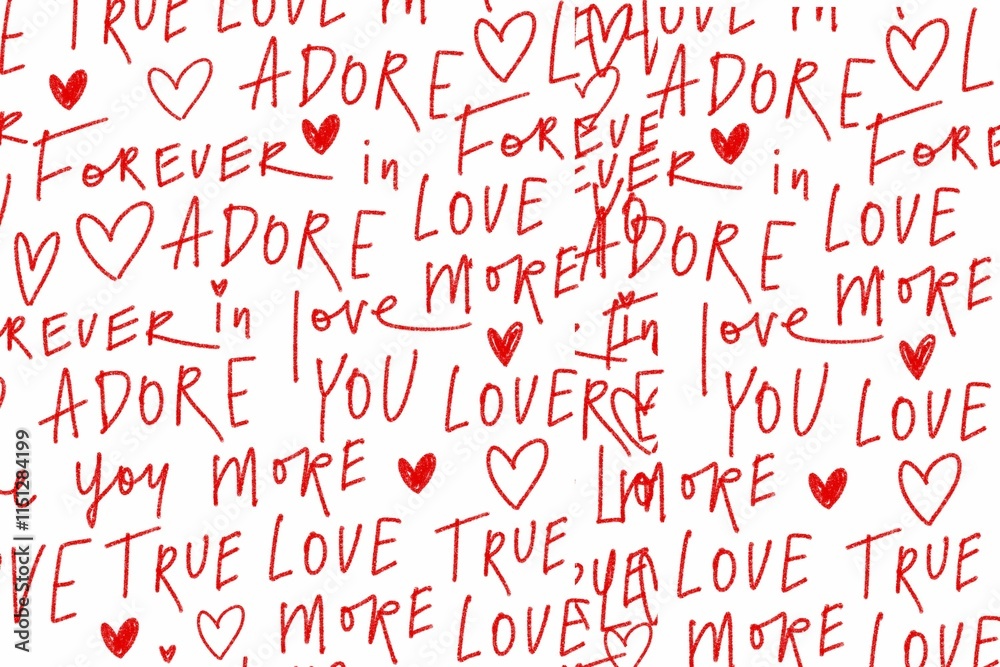 TRUE LOVE M LOVE M
ADORE L ADORE L
FOREVER in FOREVE EVER in FORE
ADORE LOVE YO ADORE LOVE
REVER in love MORE in love MORE
ADORE YOU LOVE YOU LOVE
you MORE MORE
VE TRUE LOVE TRUE, LOVE TRUE
MORE LOVE MORE LOVE
Adobe Stock | #1161284199